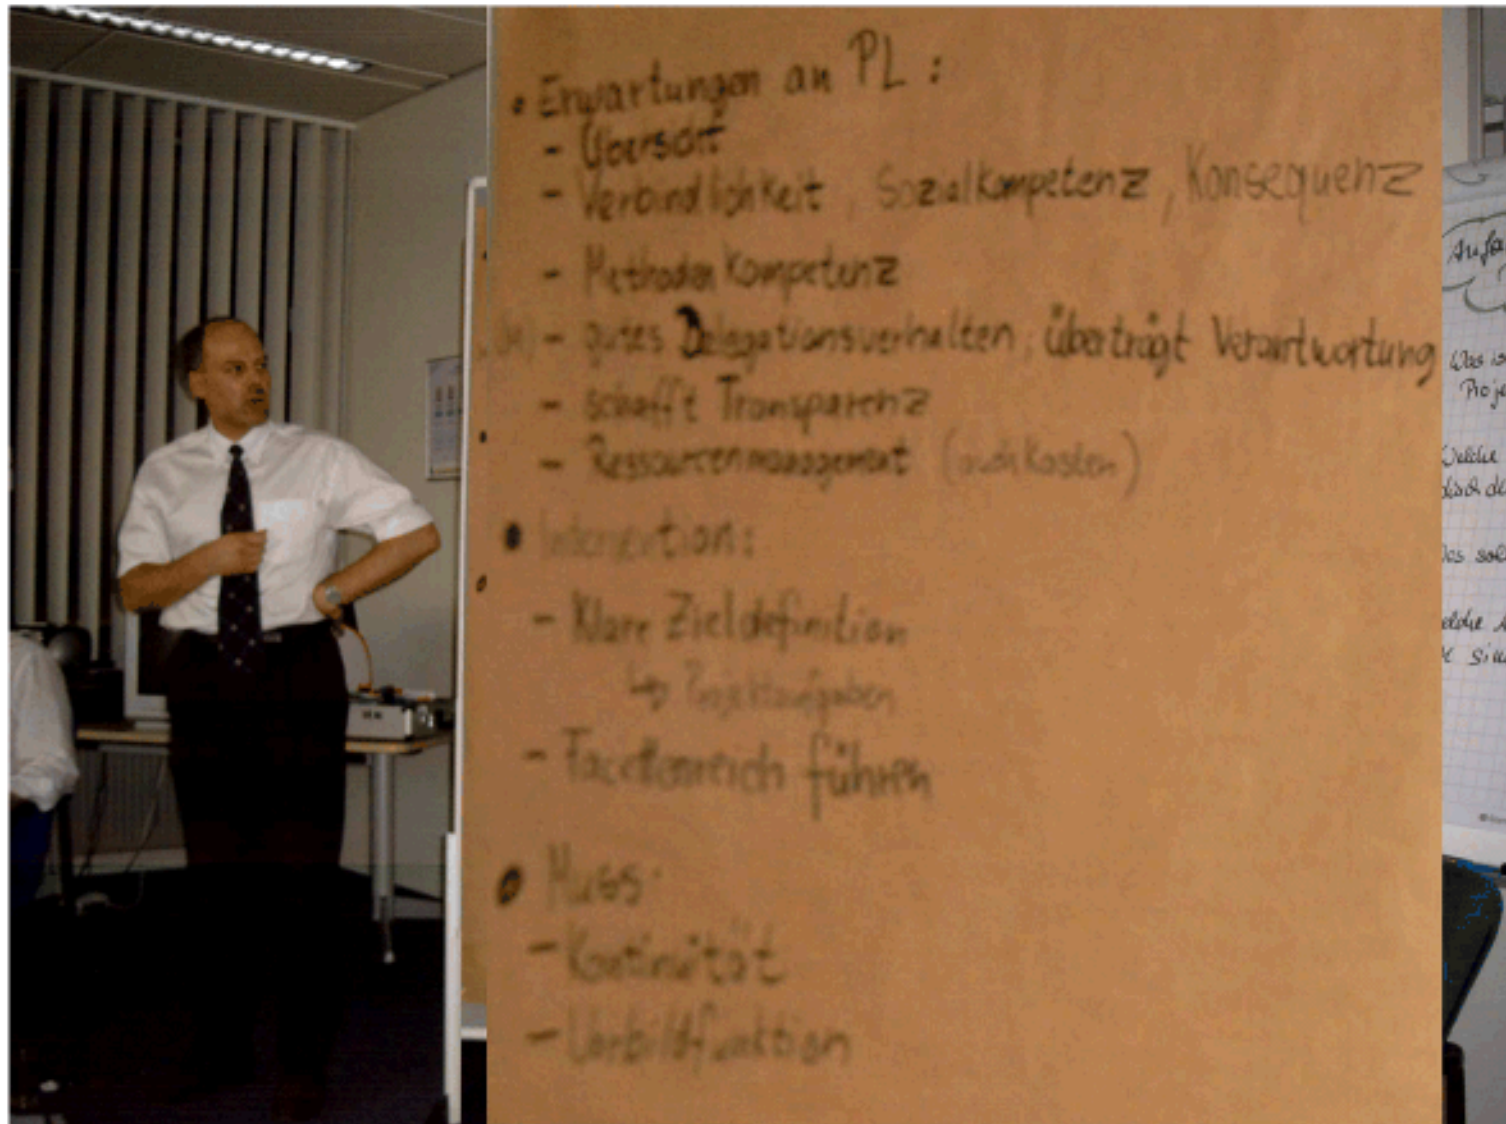 • Erwartungen an PL :
- Übersicht
- Verbindlichkeit, Sozialkompetenz, Konsequenz
- Methodenkompetenz
- gutes Delegationsverhalten, überträgt Verantwortung
- schafft Transparenz
- Ressourcenmanagement (auch Kosten)
• Intervention:
- Klare Zieldefinition
↳ Projektaufgaben
- Facettenreich führen
• Muss:
- Kontinuität
- Vorbildfunktion
Was is
Proje
Welche